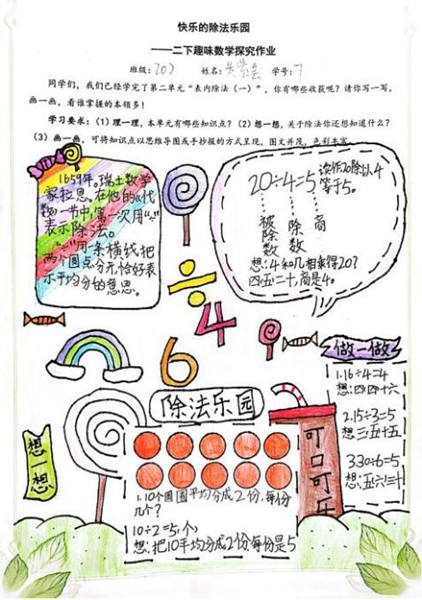 快乐的除法乐园
——二下趣味数学探究作业
班级：201 姓名： 学号：7
同学们，我们已经学完了第二单元“表内除法（一）”，你有哪些收获呢？请你写一写，
画一画，看谁掌握的本领多！
学习要求：（1）理一理，本单元有哪些知识点？（2）想一想，关于除法你还想知道什么？
（3）画一画，可将知识点以思维导图或手抄报的方式呈现，图文并茂，色彩丰富。
1659年，瑞士数学
家拉恩。在他的《代
数》一书中，第一次用“÷”
表示除法。
“÷”用一条横线把
两个圆点分开，恰好表
示平均分的意思。
20÷4=5 读作20除以4
等于5。
被除数 除数 商
想：4和几相乘得20？
四五二十，商是4。
÷
4
6
做一做
1.16÷4=4
想：四四十六
2.15÷3=5
想：三五十五
3.30÷6=5
想：五六三十
除法乐园
想一想
1.10个圆圆平均分成2份，每份
几个？
10÷2=5(个)
想：把10平均分成2份每份是5
可口可乐